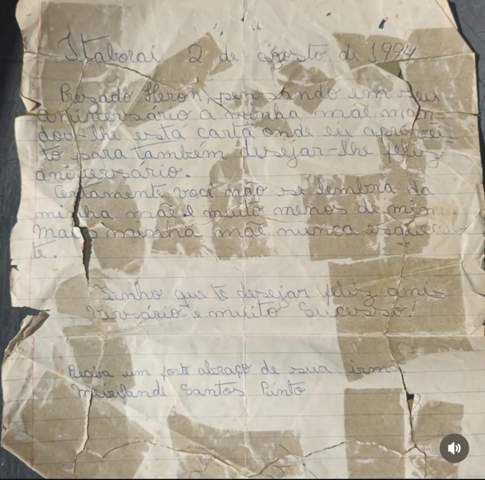 Itaboraí 2 de agosto de 1994
Prezado Heron, pensando em seu
aniversário a minha mãe man-
dou-lhe esta carta onde eu aprovei-
to para também desejar-lhe feliz
aniversario.
Certamente você não se lembria da
minha mãe e muito menos de mim
mais minha mãe nunca esqueceu
te.
Tenho que te desejar feliz ani-
versário e muito sucesso!
Receba um forte abraço de sua irmã
Santos Pinto